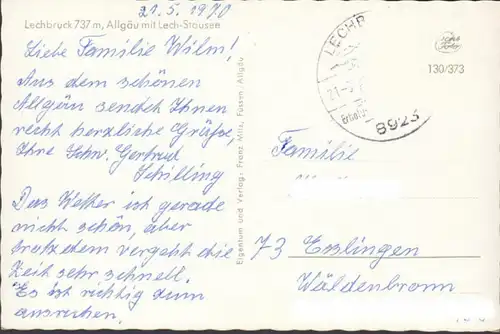 21.5.1970
Lechbruck 737 m, Allgäu mit Lech-Stausee
Liebe Familie Wilm!
Aus dem schönen
Allgäu sendet Ihnen
recht herzliche Grüße,
Ihre Schw. Gertrud
Schilling
Das Wetter ist gerade
nicht schön, aber
trotzdem vergeht die
Zeit sehr schnell.
Es ist richtig zum
ausruhen.
Eigentum und Verlag, Franz Milz, Füssen/Allgäu
LECHB
8923
130/373
Familie
73 Esslingen
Wäldenbronn